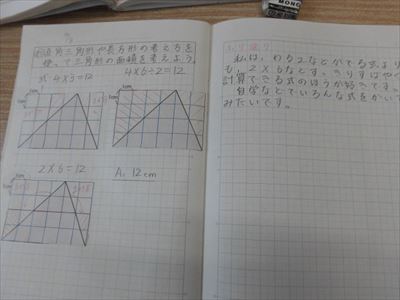 直角三角形や長方形の考え方を
使って三角形の面積を考えよう。
式 4×3=12
4×6÷2=12
1cm
1cm
1cm
2×6=12
A. 12cm
ふり返り
私は、わる2などがでる式より
も、2×6など
計算できる式のほうが好きです。
自学などでいろんな式をかいて
みたいです。
MONO